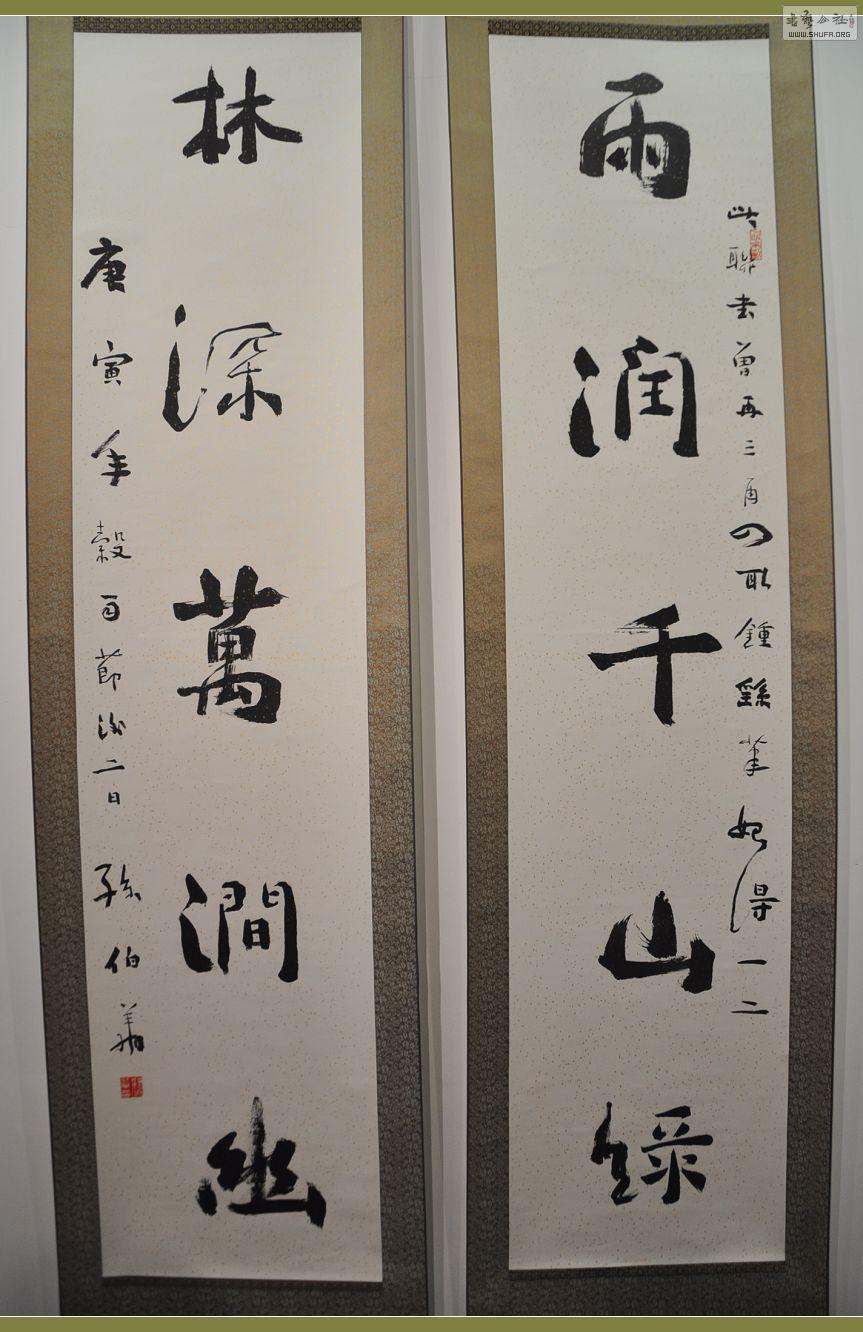 書藝公社
WWW.SHUFA.ORG
此聯書曾再三再四取鍾繇筆始得一二
雨潤千山緑
林深萬澗幽
庚寅年穀雨節後二日孫伯翔